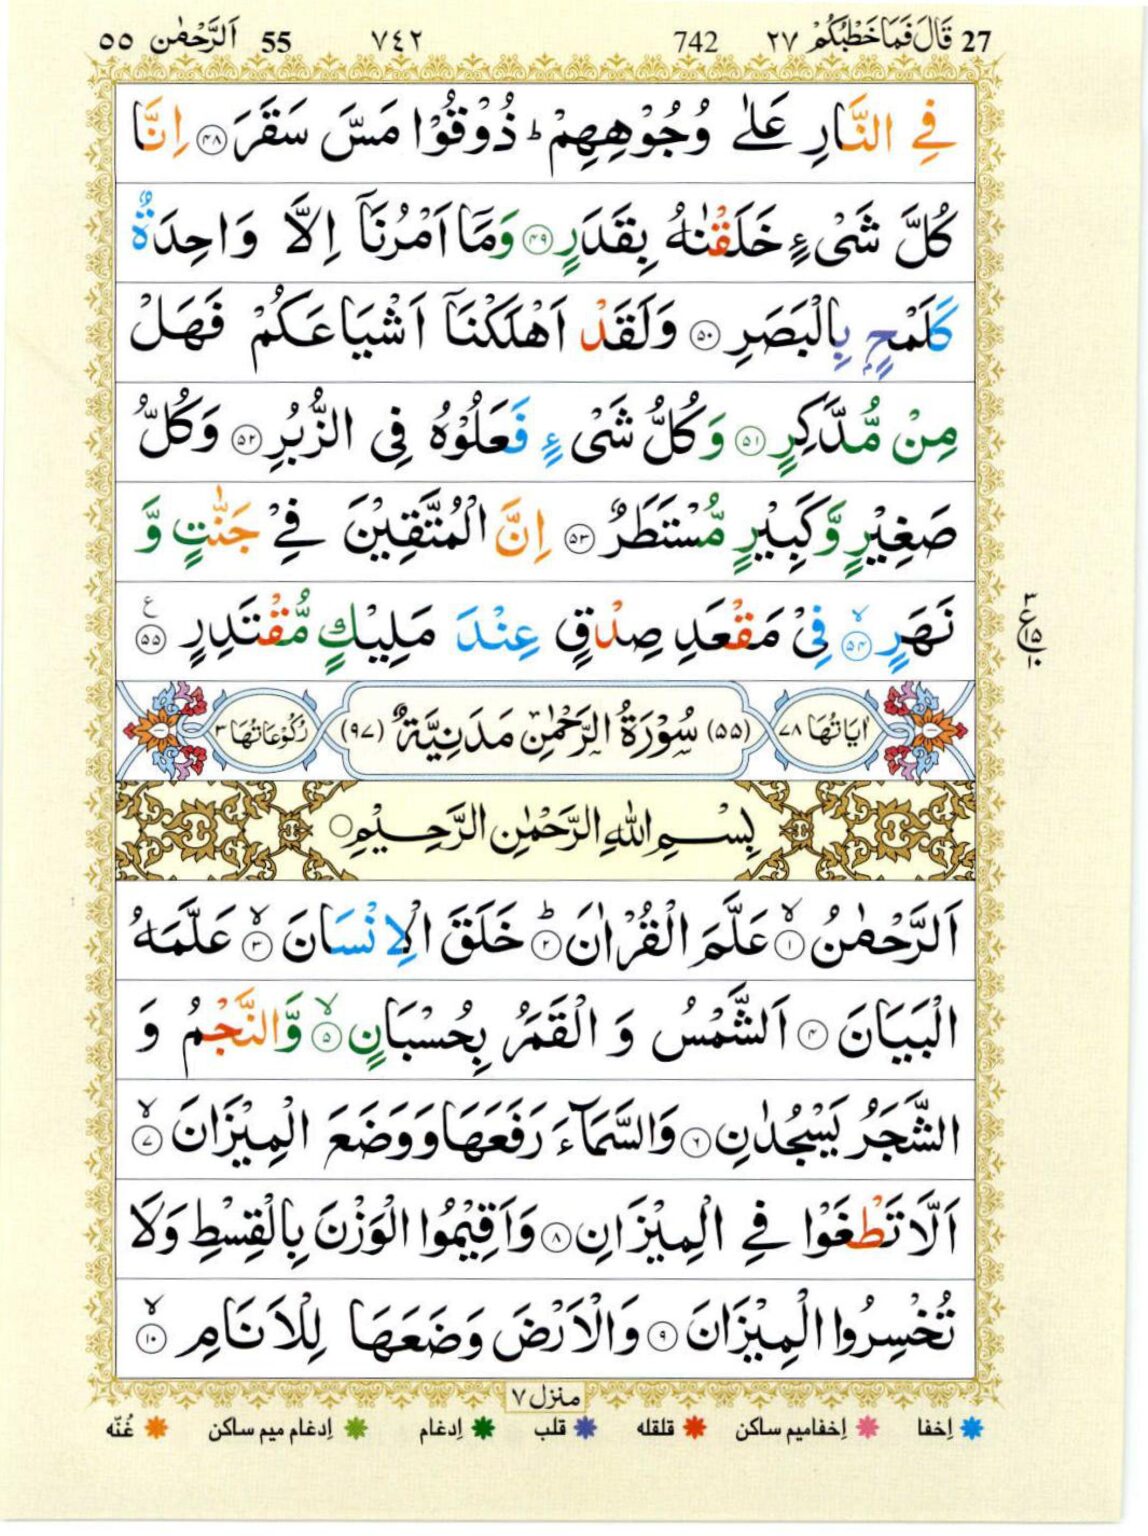 27 قَالَ فَمَا خَطْبُكُمْ ٢٧ 742 ٧٤٢ 55 اَلرَّحْمٰن ٥٥
فِي النَّارِ عَلٰى وُجُوْهِهِمْ ؕ ذُوْقُوْا مَسَّ سَقَرَ ﴿۴۸﴾ اِنَّا
كُلَّ شَيْءٍ خَلَقْنٰهُ بِقَدَرٍ ﴿۴۹﴾ وَمَاۤ اَمْرُنَاۤ اِلَّا وَاحِدَةٌ
كَلَمْحٍۭ بِالْبَصَرِ ﴿۵۰﴾ وَلَقَدْ اَهْلَكْنَاۤ اَشْيَاعَكُمْ فَهَلْ
مِنْ مُّدَّكِرٍ ﴿۵۱﴾ وَكُلُّ شَيْءٍ فَعَلُوْهُ فِى الزُّبُرِ ﴿۵۲﴾ وَكُلُّ
صَغِيْرٍ وَّكَبِيْرٍ مُّسْتَطَرٌ ﴿۵۳﴾ اِنَّ الْمُتَّقِيْنَ فِيْ جَنّٰتٍ وَّ
نَهَرٍ ۙ﴿۵۴﴾ فِيْ مَقْعَدِ صِدْقٍ عِنْدَ مَلِيْكٍ مُّقْتَدِرٍ ﴿۵۵﴾ ع
٣ ع ١٥ ١٠
اٰيَاتُهَا ٧٨ (٥٥) سُوْرَةُ الرَّحْمٰنِ مَدَنِيَّةٌ (٩٧) رُكُوْعَاتُهَا ٣
بِسْمِ اللهِ الرَّحْمٰنِ الرَّحِيْمِ
اَلرَّحْمٰنُ ۙ﴿۱﴾ عَلَّمَ الْقُرْاٰنَ ؕ﴿۲﴾ خَلَقَ الْاِنْسَانَ ۙ﴿۳﴾ عَلَّمَهُ
الْبَيَانَ ﴿۴﴾ اَلشَّمْسُ وَ الْقَمَرُ بِحُسْبَانٍ ۙ﴿۵﴾ وَّالنَّجْمُ وَ
الشَّجَرُ يَسْجُدٰنِ ﴿۶﴾ وَالسَّمَآءَ رَفَعَهَا وَوَضَعَ الْمِيْزَانَ ۙ﴿۷﴾
اَلَّا تَطْغَوْا فِي الْمِيْزَانِ ﴿۸﴾ وَاَقِيْمُوا الْوَزْنَ بِالْقِسْطِ وَلَا
تُخْسِرُوا الْمِيْزَانَ ﴿۹﴾ وَالْاَرْضَ وَضَعَهَا لِلْاَنَامِ ۙ﴿۱۰﴾
منزل ٧
اِخفا اِخفامیم ساکن قلقله قلب اِدغام اِدغام میم ساکن غُنّه